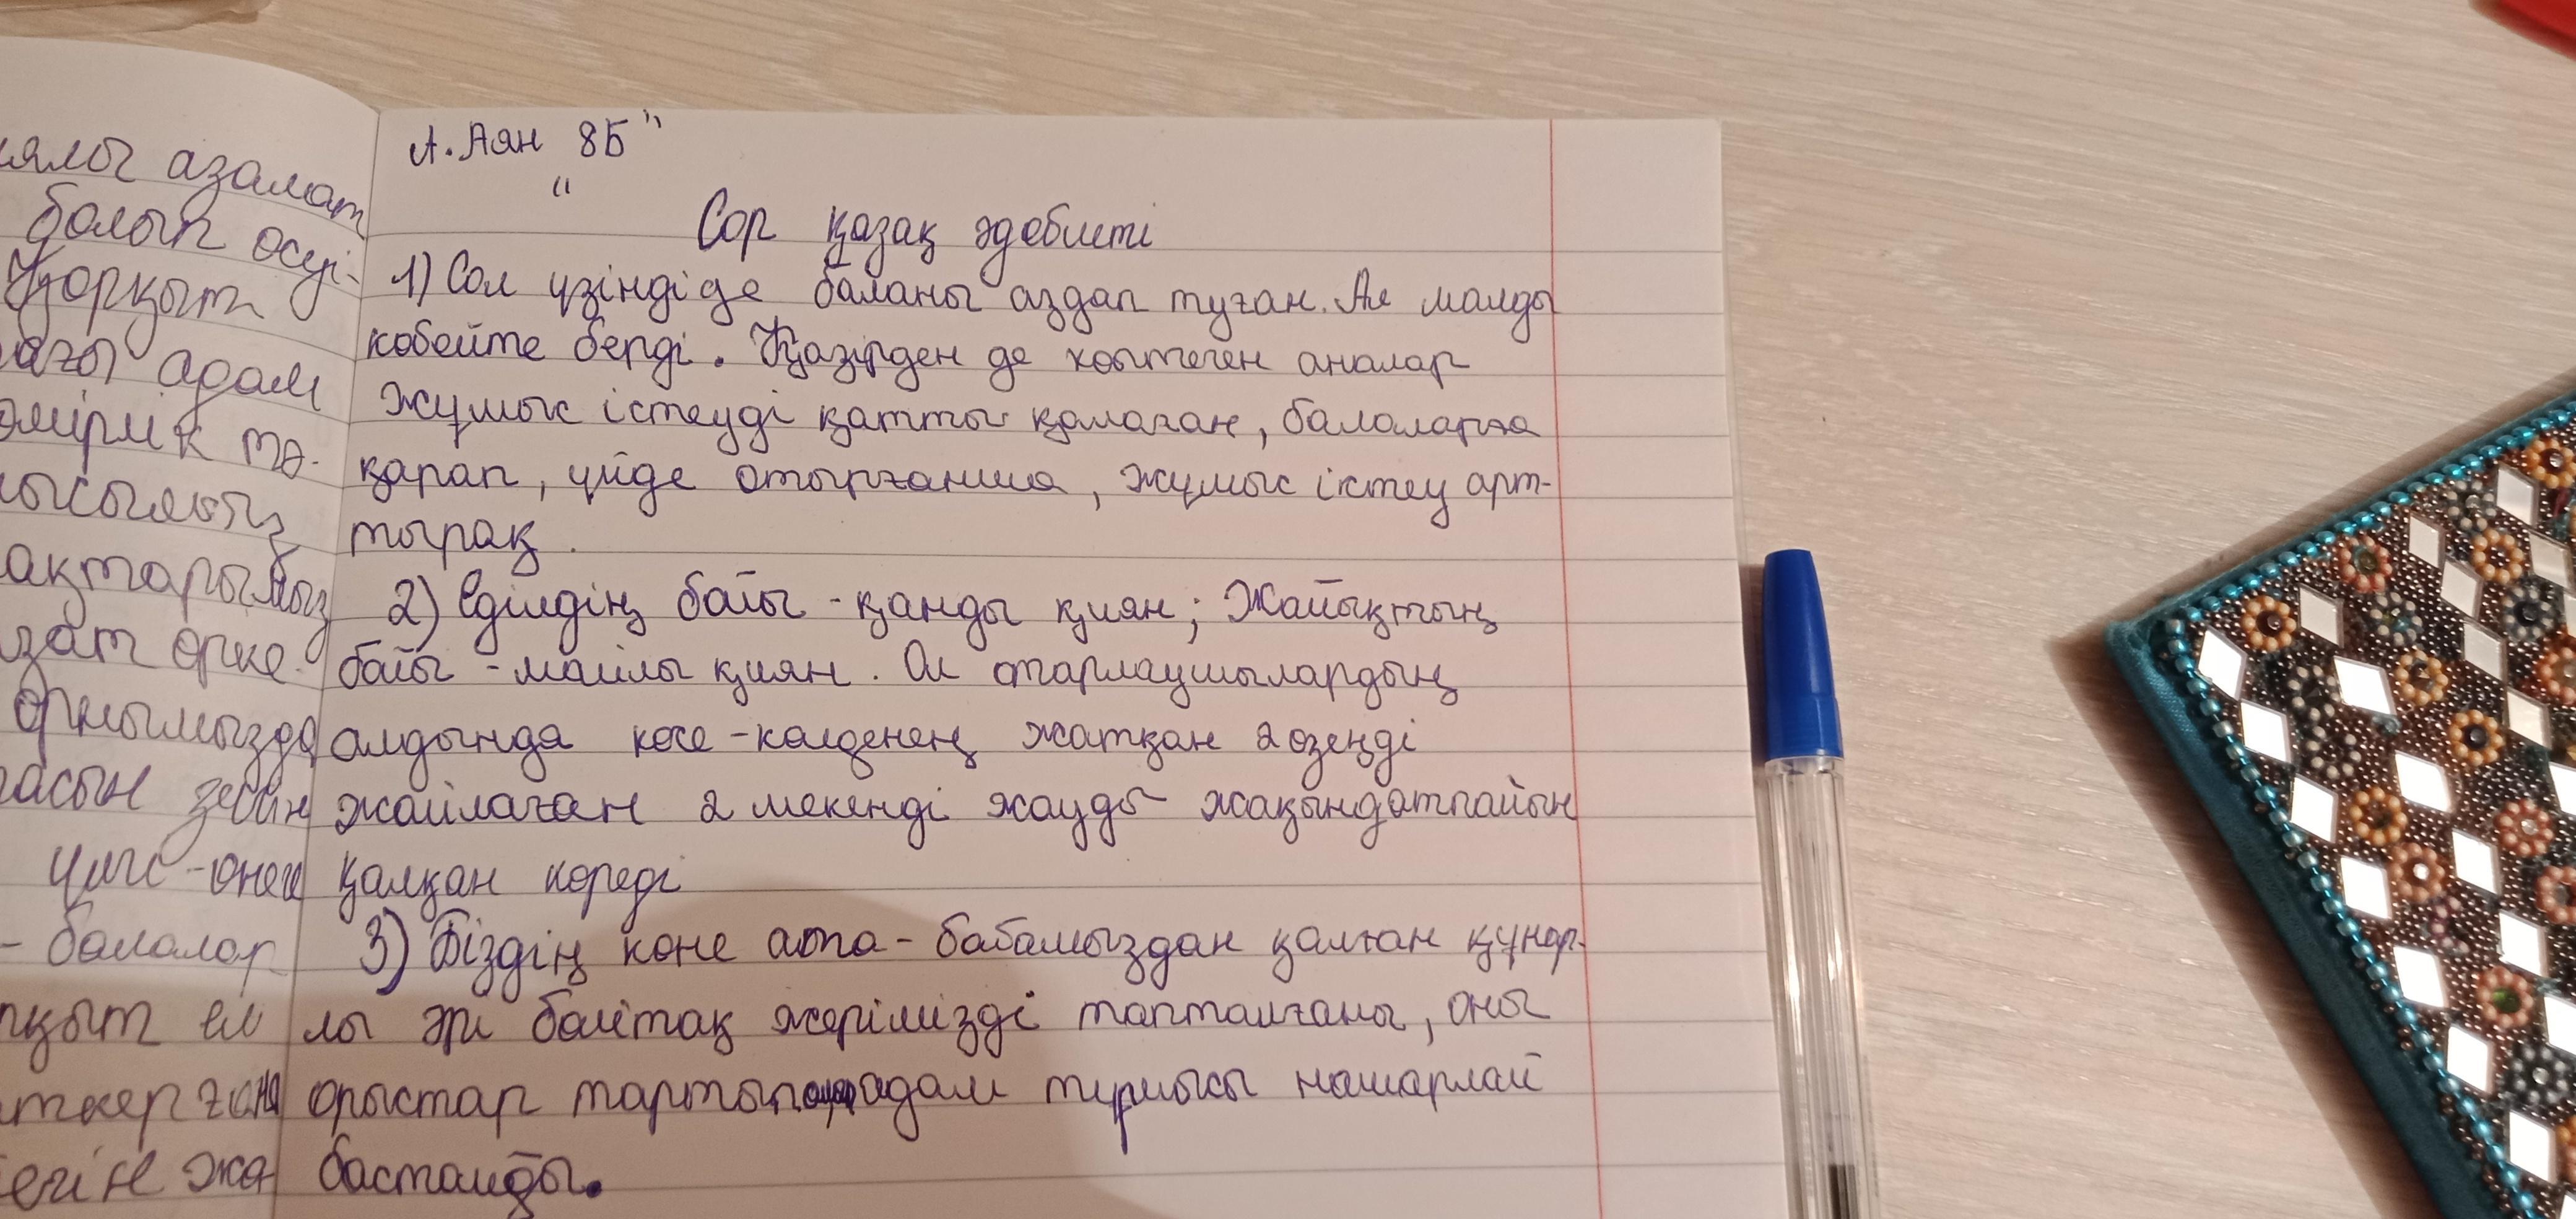 ялы азамат
болып өсуі-
Қорқыт
ағы адам
өмірлік тә-
ақтарымыз
зат өрке-
орнымызда
- балалар
А. Аян "8Б"
Сор қазақ әдебиеті
1) Сол үзіндіде баланы аздап туған. Ал малды
көбейте берді. Қазірден де көптеген аналар
жұмыс істеуді қатты қалаған, балаларға
қарап, үйде отырғанша, жұмыс істеу арт-
тырақ.
2) Еділдің бойы - қанды қиян; Жайықтың
бойы - майлы қиян. Ол отарлаушылардың
алдында көсе-көлденең жатқан 2 өзеңді
жайлаған 2 мекенді жауды жақындатпайын
қалқан көреді
3) Біздің көне ата-бабамыздан қалған құнар-
лы әрі байтақ жерімізді тапталғаны, оны
орыстар тартып адам тұрмысы нашарлай
бастайды.